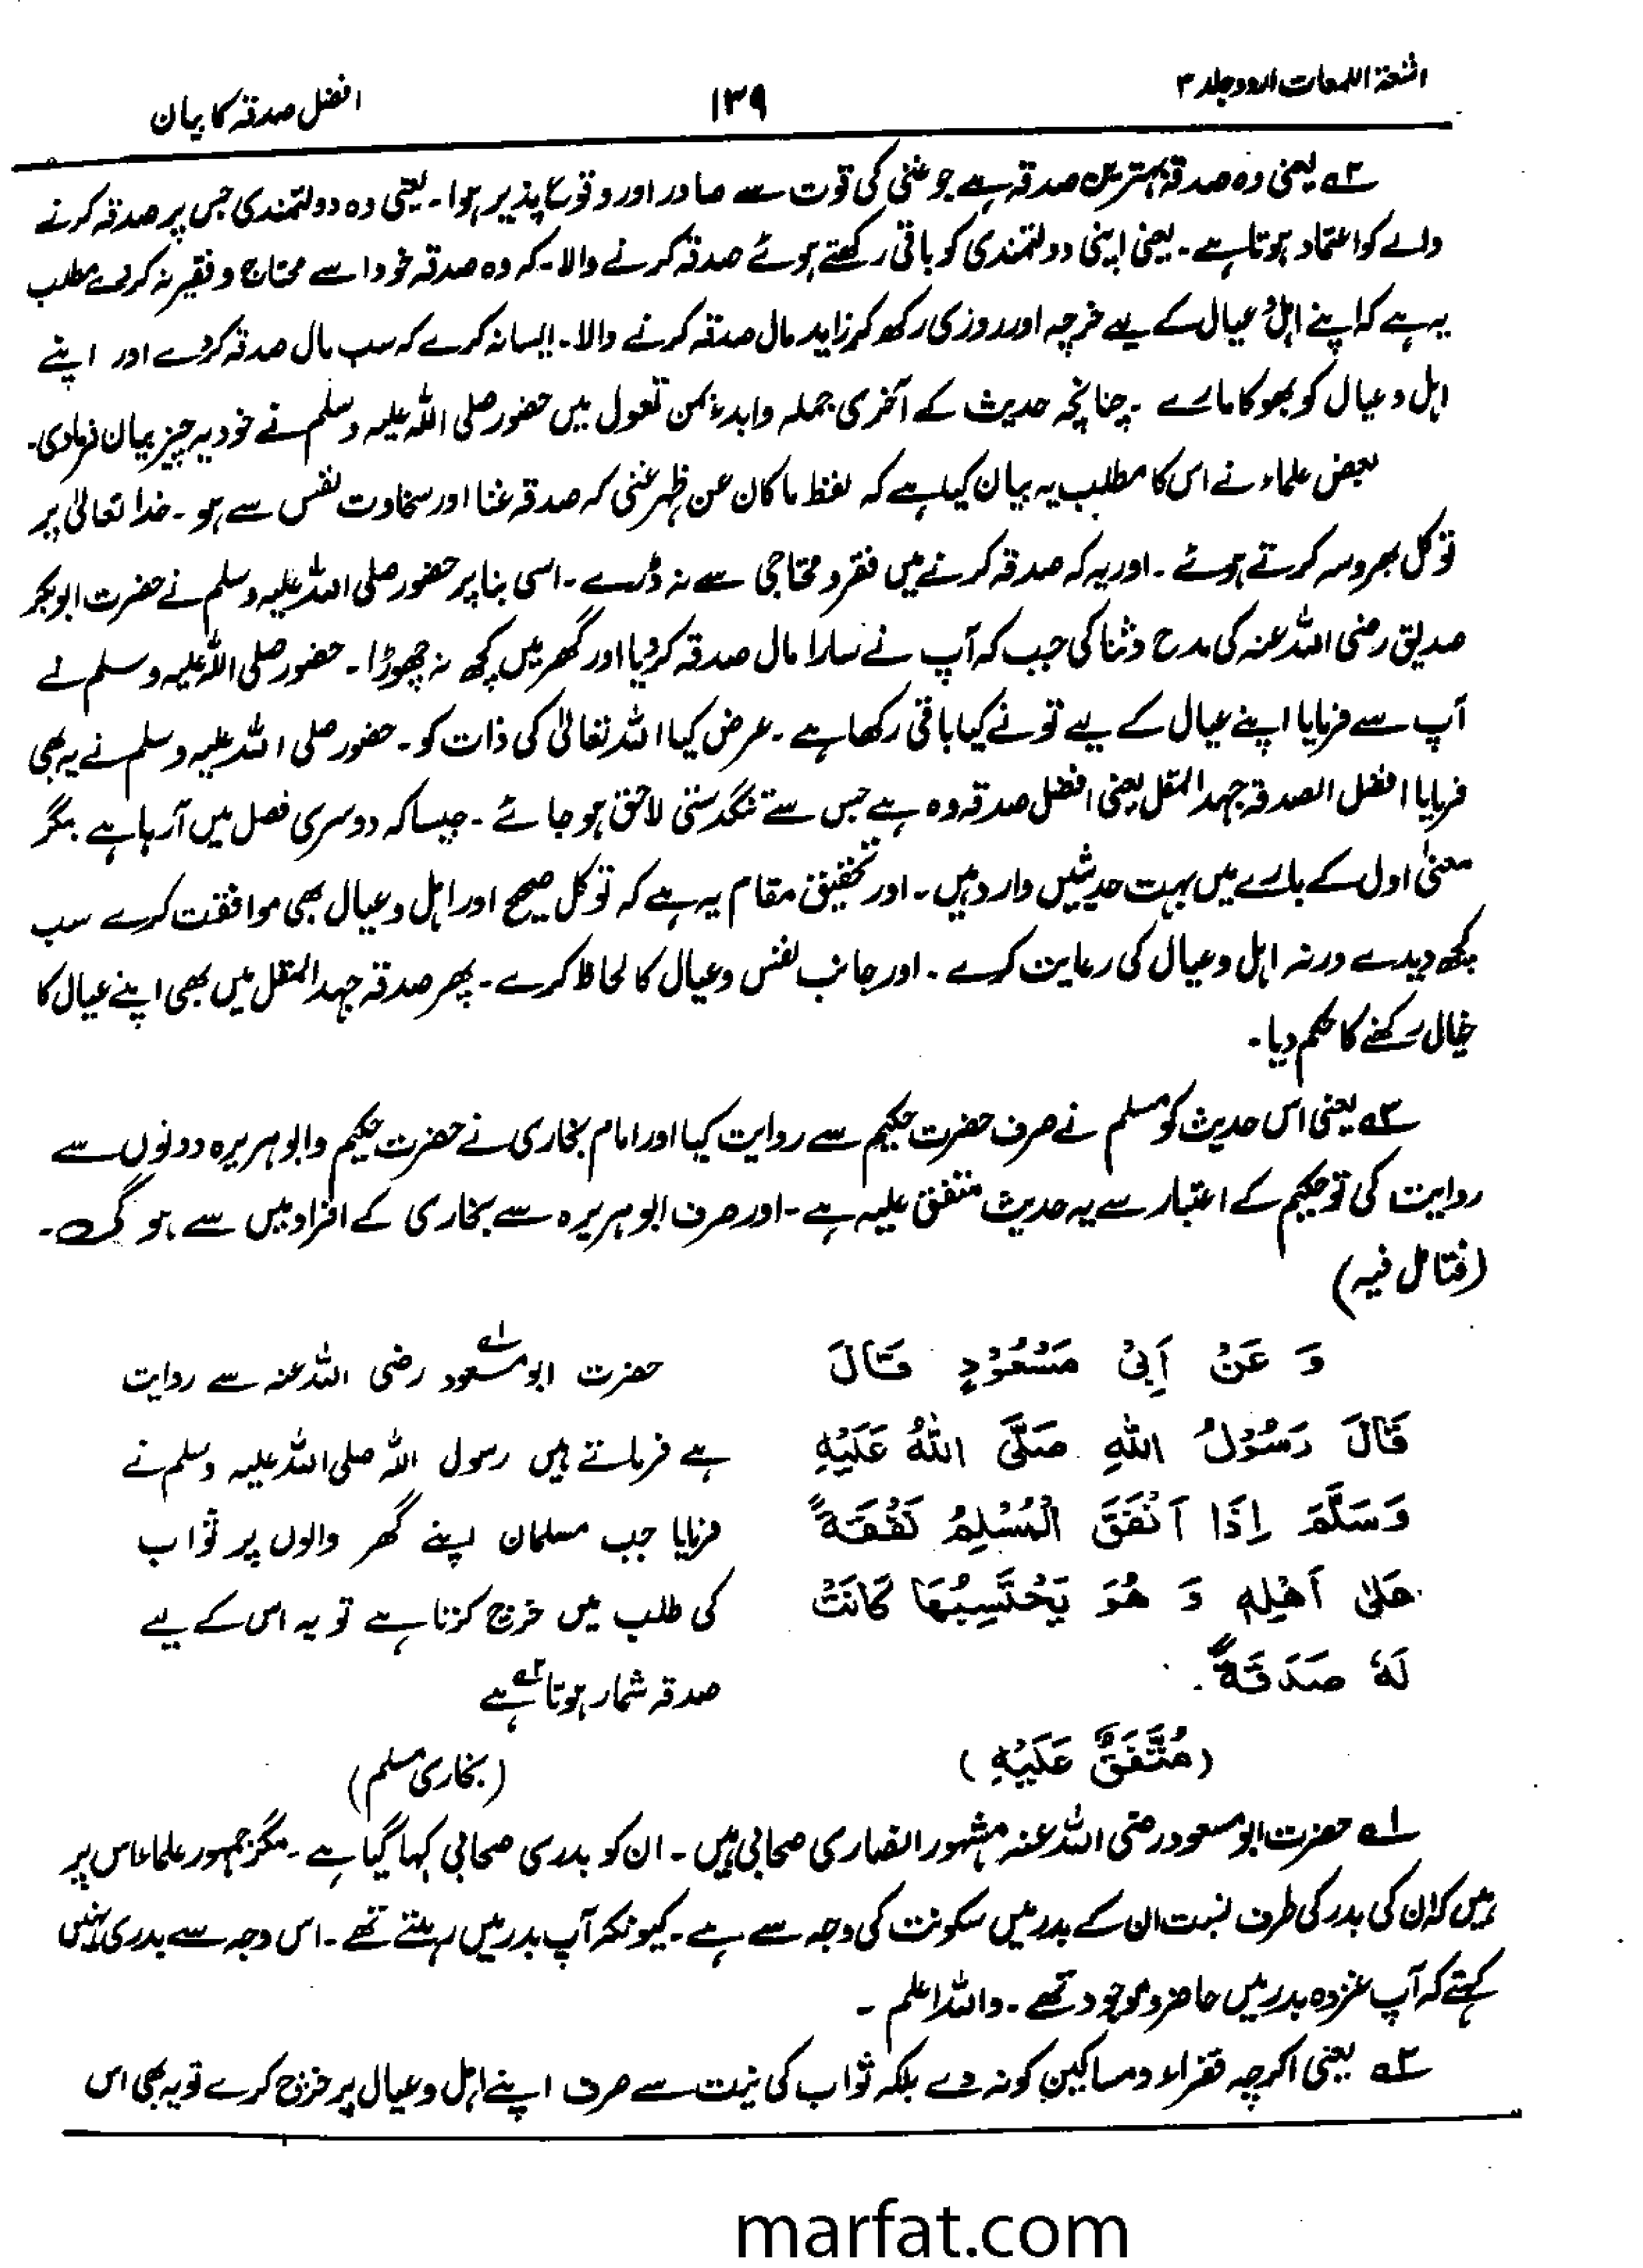 اشعۃ اللمعات اردو جلد ۳
۱۳۹
افضل صدقہ کا بیان
۲ے یعنی وہ صدقہ بہترین صدقہ ہے جو غنٰی کی قوت سے صادر اور وقوع پذیر ہوا۔ یعنی وہ دولتمندی جس پر صدقہ کرنے
والے کو اعتماد ہوتا ہے۔ یعنی اپنی دولتمندی کو باقی رکھتے ہوئے صدقہ کرنے والا۔ کہ وہ صدقہ خود اسے محتاج و فقیر نہ کردے مطلب
یہ ہے کہ اپنے اہل و عیال کے لیے خرچہ اور روزی رکھ کر زاید مال صدقہ کرنے والا۔ ایسا نہ کرے کہ سب مال صدقہ کردے اور اپنے
اہل و عیال کو بھوکا مارے۔ چنانچہ حدیث کے آخری جملہ وابدء بمن تعول میں حضور صلی اللہ علیہ وسلم نے خود یہ چیز بیان فرمادی۔
بعض علماء نے اس کا مطلب یہ بیان کیا ہے کہ لفظ ما کان عن ظہر غنٰی کہ صدقہ غنا اور سخاوت نفس سے ہو۔ خدا تعالیٰ پر
توکل بھروسہ کرتے ہوئے۔ اور یہ کہ صدقہ کرنے میں فقر و محتاجی سے نہ ڈرے۔ اسی بنا پر حضور صلی اللہ علیہ وسلم نے حضرت ابوبکر
صدیق رضی اللہ عنہ کی مدح و ثنا کی جب کہ آپ نے سارا مال صدقہ کردیا اور گھر میں کچھ نہ چھوڑا۔ حضور صلی اللہ علیہ وسلم نے
آپ سے فرمایا اپنے عیال کے لیے تو نے کیا باقی رکھا ہے۔ عرض کیا اللہ تعالیٰ کی ذات کو۔ حضور صلی اللہ علیہ وسلم نے یہ بھی
فرمایا افضل الصدقہ جہد المقل یعنی افضل صدقہ وہ ہے جس سے تنگدستی لاحق ہو جائے۔ جیسا کہ دوسری فصل میں آرہا ہے مگر
معنیٰ اول کے بارے میں بہت حدیثیں وارد ہیں۔ اور تحقیق مقام یہ ہے کہ توکل صحیح اور اہل و عیال بھی موافقت کرے سب
کچھ دیدے ورنہ اہل و عیال کی رعایت کرے۔ اور جانب نفس و عیال کا لحاظ کرے۔ پھر صدقہ جہد المقل میں بھی اپنے عیال کا
خیال رکھنے کا حکم دیا۔
۳ے یعنی اس حدیث کو مسلم نے صرف حضرت حکیم سے روایت کیا اور امام بخاری نے حضرت حکیم و ابوہریرہ دونوں سے
روایت کی تو حکیم کے اعتبار سے یہ حدیث متفق علیہ ہے۔ اور صرف ابوہریرہ سے بخاری کے افراد میں سے ہو گی۔
(فتامل فیہ)
وَ عَنْ اَبِیْ مَسْعُوْدٍ قَالَ
قَالَ رَسُوْلُ اللهِ صَلَّی اللهُ عَلَیْهِ
وَسَلَّمَ اِذَا اَنْفَقَ الْمُسْلِمُ نَفْقَةً
عَلٰی اَهْلِهٖ وَ هُوَ یَحْتَسِبُهَا کَانَتْ
لَهٗ صَدَقَةً.
(مُتَّفَقٌ عَلَیْهِ)
حضرت ابو مسعود۱ے رضی اللہ عنہ سے روایت
ہے فرماتے ہیں رسول اللہ صلی اللہ علیہ وسلم نے
فرمایا جب مسلمان اپنے گھر والوں پر ثواب
کی طلب میں خرچ کرتا ہے تو یہ اس کے لیے
صدقہ شمار ہوتا ہے۲ے
(بخاری مسلم)
۱ے حضرت ابو مسعود رضی اللہ عنہ مشہور انصاری صحابی ہیں۔ ان کو بدری صحابی کہا گیا ہے۔ مگر جمہور علماء اس پر
ہیں کہ ان کی بدر کی طرف نسبت ان کے بدر میں سکونت کی وجہ سے ہے۔ کیونکہ آپ بدر میں رہتے تھے۔ اس وجہ سے بدری نہیں
کہتے کہ آپ غزوہ بدر میں حاضر و موجود تھے۔ واللہ اعلم۔
۲ے یعنی اگرچہ فقراء و مساکین کو نہ دے بلکہ ثواب کی نیت سے صرف اپنے اہل و عیال پر خرچ کرے تو یہ بھی اس
marfat.com